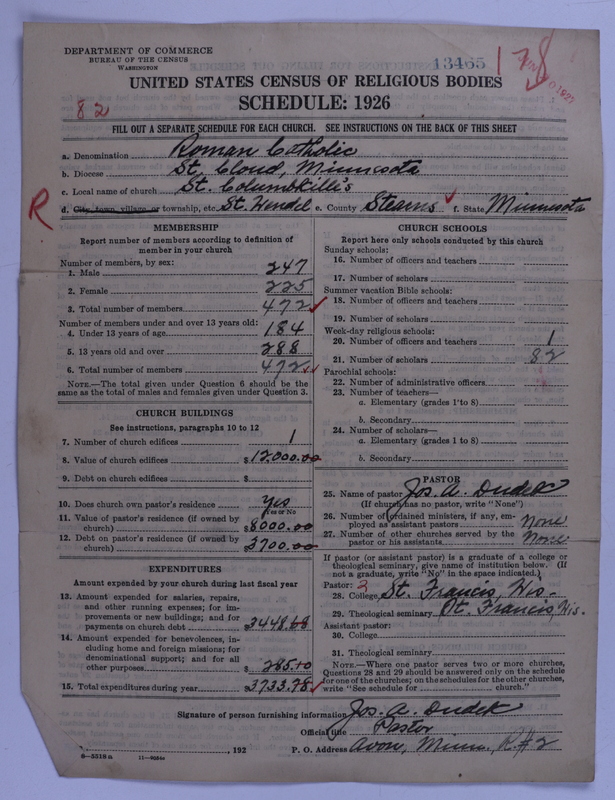 DEPARTMENT OF COMMERCE
BUREAU OF THE CENSUS
WASHINGTON
13465
178
UNITED STATES CENSUS OF RELIGIOUS BODIES
SCHEDULE: 1926
82
FILL OUT A SEPARATE SCHEDULE FOR EACH CHURCH. SEE INSTRUCTIONS ON THE BACK OF THIS SHEET
a. Denomination Roman Catholic
b. Diocese St. Cloud, Minnesota
c. Local name of church St. Columbkille's
R
d. City, town, village, or township, etc. St. Wendel e. County Stearns f. State Minnesota
MEMBERSHIP
Report number of members according to definition of member in your church
Number of members, by sex:
1. Male 247
2. Female 225
3. Total number of members 472
Number of members under and over 13 years old:
4. Under 13 years of age 184
5. 13 years old and over 288
6. Total number of members 472
NOTE.—The total given under Question 6 should be
same as the total of males and females given under Question 3.
CHURCH BUILDINGS
See instructions, paragraphs 10 to 12
7. Number of church edifices 1
8. Value of church edifices $ 12,000.00
9. Debt on church edifices $
10. Does church own pastor's residence Yes
Yes or No
11. Value of pastor's residence (if owned by
church) $ 8000.00
12. Debt on pastor's residence (if owned by
church) $ 3700.00
EXPENDITURES
Amount expended by your church during last fiscal year
13. Amount expended for salaries, repairs,
and other running expenses; for im-
provements or new buildings; and for
payments on church debt $ 3448.68
14. Amount expended for benevolences, in-
cluding home and foreign missions; for
denominational support; and for all
other purposes $ 285.10
15. Total expenditures during year $ 3733.78
CHURCH SCHOOLS
Report here only schools conducted by this church
Sunday schools:
16. Number of officers and teachers
17. Number of scholars
Summer vacation Bible schools:
18. Number of officers and teachers
19. Number of scholars
Week-day religious schools:
20. Number of officers and teachers 1
21. Number of scholars 82
Parochial schools:
22. Number of administrative officers
23. Number of teachers—
a. Elementary (grades 1 to 8)
b. Secondary
24. Number of scholars—
a. Elementary (grades 1 to 8)
b. Secondary
PASTOR
25. Name of pastor Jos. A. Dudek
(If church has no pastor, write "None")
26. Number of ordained ministers, if any, em-
ployed as assistant pastors None
27. Number of other churches served by the
pastor or his assistants None
If pastor (or assistant pastor) is a graduate of a college or
theological seminary, give name of institution below. (If
not a graduate, write "No" in the space indicated.)
Pastor: 3
28. College St. Francis, Wis.
29. Theological seminary St. Francis, Wis.
Assistant pastor:
30. College
31. Theological seminary
NOTE.—Where one pastor serves two or more churches,
Questions 28 and 29 should be answered only on the schedule
for one of the churches; on the schedules for the other churches,
write "See schedule for church."
Signature of person furnishing information Jos. A. Dudek
Official title Pastor
, 192 P. O. Address Avon, Minn., R#2
8—5518a 11—9284